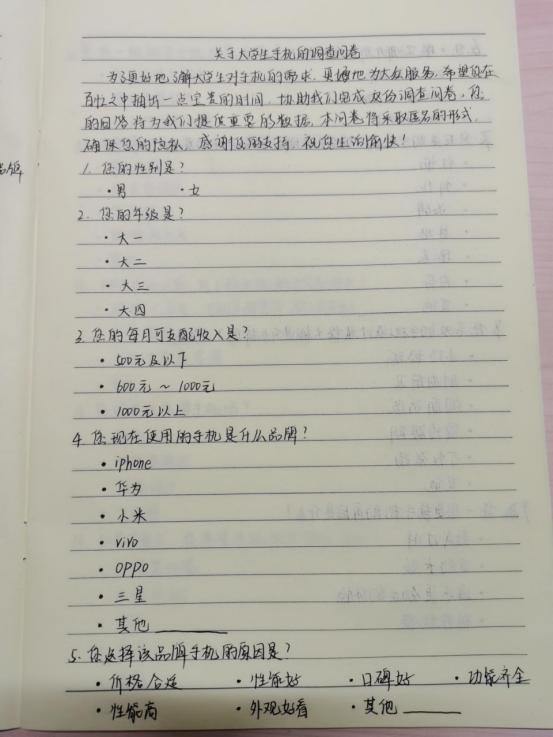 关于大学生手机的调查问卷
为了更好地了解大学生对手机的需求，更好地为大众服务，希望您在
百忙之中抽出一点宝贵的时间，协助我们完成这份调查问卷，您
的回答将为我们提供重要的数据。本问卷将采取匿名的形式，
确保您的隐私，感谢您的支持，祝您生活愉快！
1. 您的性别是？
·男 ·女
2. 您的年级是？
·大一
·大二
·大三
·大四
3. 您的每月可支配收入是？
·500元及以下
·600元～1000元
·1000元以上
4. 您现在使用的手机是什么品牌？
·iphone
·华为
·小米
·vivo
·OPPO
·三星
·其他
5. 您选择该品牌手机的原因是？
·价格合适 ·性能好 ·口碑好 ·功能齐全
·性能高 ·外观好看 ·其他
品牌